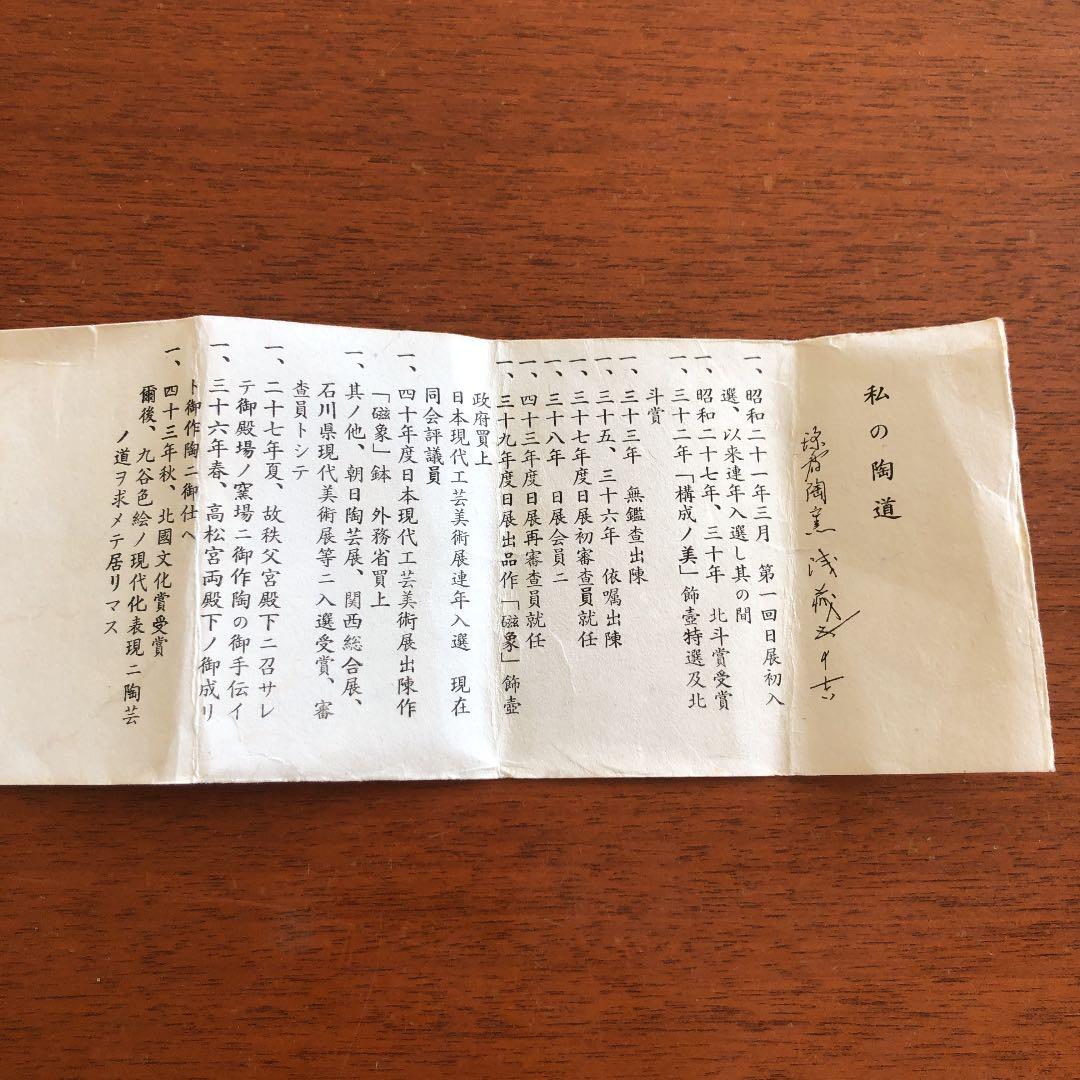 私の陶道
陶窯 浅蔵五十吉
一、昭和二十一年三月 第一回日展初入
選、以来連年入選し其の間
一、昭和二十七年、三十年 北斗賞受賞
一、三十二年「構成ノ美」飾壺特選及北
斗賞
一、三十三年 無鑑査出陳
一、三十五、三十六年 依嘱出陳
一、三十七年度日展初審査員就任
一、三十八年 日展会員ニ
一、四十三年度日展再審査員就任
一、三十九年度日展出品作「磁象」飾壺
政府買上
日本現代工芸美術展連年入選 現在
同会評議員
一、四十年度日本現代工芸美術展出陳作
「磁象」鉢 外務省買上
一、其ノ他、朝日陶芸展、関西総合展、
石川県現代美術展等ニ入選受賞、審
査員トシテ
一、二十七年夏、故秩父宮殿下ニ召サレ
テ御殿場ノ窯場ニ御作陶の御手伝イ
一、三十六年春、高松宮両殿下ノ御成リ
ト御作陶ニ御仕ヘ
一、四十三年秋、北國文化賞受賞
爾後、九谷色絵ノ現代化表現ニ陶芸
ノ道ヲ求メテ居リマス